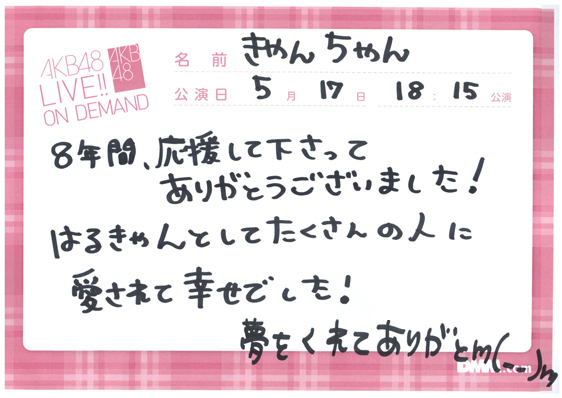 AKB48
LIVE!!
ON DEMAND
AKB
48
名前 きゃんちゃん
公演日 5月17日 18:15公演
8年間、応援して下さって
ありがとうございました!
はるきゃんとしてたくさんの人に
愛されて幸せでした!
夢をくれてありがとm(__)m
DMM.com